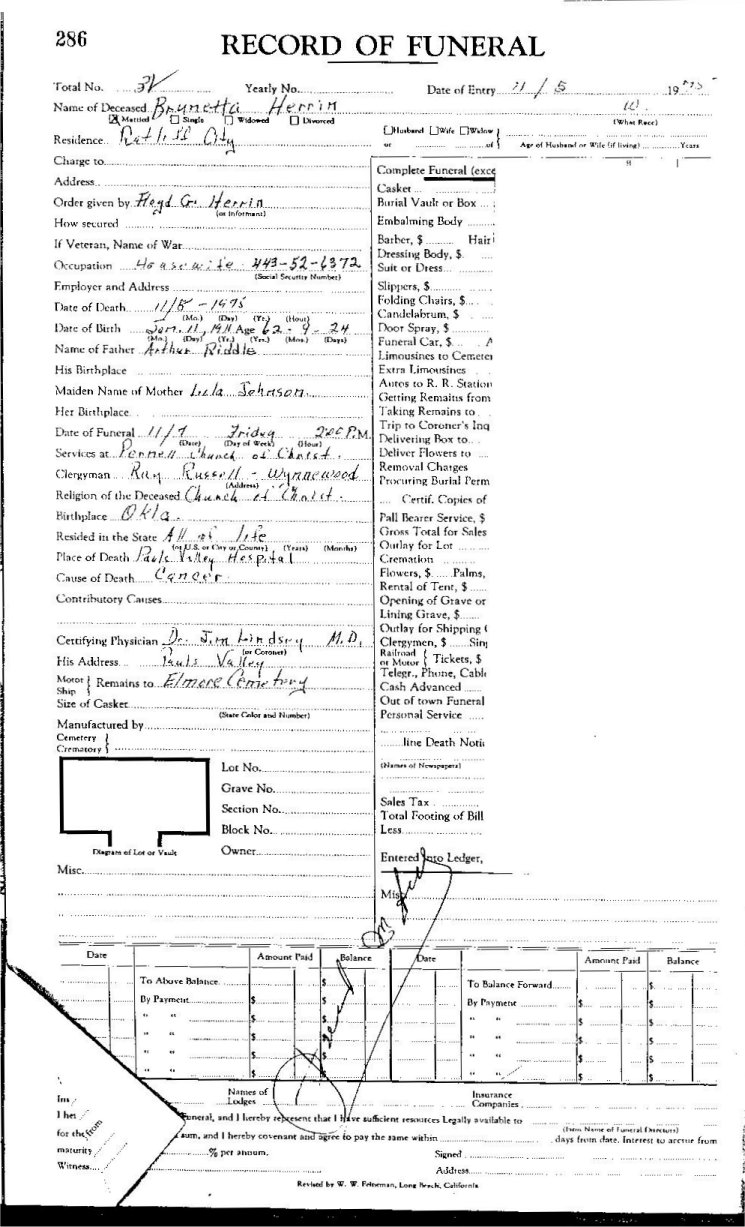 286
RECORD OF FUNERAL
Total No. Yearly No. Date of Entry 11 / 5 19
Name of Deceased Brunetta Herrin W.
Married Single Widowed Divorced (What Race)
Residence Ratliff City
Husband Wife Widow
or of Age of Husband or Wife (if living) Years
Charge to
Address
Order given by Floyd G. Herrin
(or Informant)
How secured
If Veteran, Name of War
Occupation Housewife 443-52-6372
(Social Security Number)
Employer and Address
Date of Death 11/5 - 1975
(Mo.) (Day) (Yr.) (Hour)
Date of Birth Jan. 11, 1911 Age 62 - 9 - 24
(Mo.) (Day) (Yr.) (Yrs.) (Mos.) (Days)
Name of Father Arthur Riddle
His Birthplace
Maiden Name of Mother Lula Johnson
Her Birthplace
Date of Funeral 11/7 Friday 2:00 P.M.
(Date) (Day of Week) (Hour)
Services at Pernell Church of Christ.
Clergyman Ray Russell - Wynnewood
(Address)
Religion of the Deceased Church of Christ.
Birthplace Okla.
Resided in the State All of life
(or U.S. or City or County) (Years) (Months)
Place of Death Pauls Valley Hospital
Cause of Death Cancer
Contributory Causes
Certifying Physician Dr. Jim Lindsey M.D.
(or Coroner)
His Address Pauls Valley
Motor
Ship
Remains to Elmore Cemetery
Size of Casket
(State Color and Number)
Manufactured by
Cemetery
Crematory
Lot No.
Grave No.
Section No.
Block No.
Diagram of Lot or Vault
Owner
Misc.
Complete Funeral (exce
Casket
Burial Vault or Box
Embalming Body
Barber, $ Hair
Dressing Body, $
Suit or Dress
Slippers, $
Folding Chairs, $
Candelabrum, $
Door Spray, $
Funeral Car, $ A
Limousines to Cemeter
Extra Limousines
Autos to R. R. Station
Getting Remains from
Taking Remains to
Trip to Coroner's Inq
Delivering Box to
Deliver Flowers to
Removal Charges
Procuring Burial Perm
Certif. Copies of
Pall Bearer Service, $
Gross Total for Sales
Outlay for Lot
Cremation
Flowers, $ Palms,
Rental of Tent, $
Opening of Grave or
Lining Grave, $
Outlay for Shipping (
Clergymen, $ Sing
Railroad
or Motor
Tickets, $
Telegr., Phone, Cable
Cash Advanced
Out of town Funeral
Personal Service
line Death Noti
(Names of Newspapers)
Sales Tax
Total Footing of Bill
Less
Entered into Ledger,
Mis
Date Amount Paid Balance Date Amount Paid Balance
To Above Balance $ To Balance Forward $
By Payment $ $ By Payment $ $
" " $ $ " " $ $
" " $ $ " " $ $
" " $ $ " " $ $
" " $ $ " " $ $
Names of
Lodges
Insurance
Companies
Ins
I her
for the from
maturity
Witness
Funeral, and I hereby represent that I have sufficient resources Legally available to
(Firm Name of Funeral Directors)
sum, and I hereby covenant and agree to pay the same within days from date. Interest to accrue from
% per annum. Signed
Address
Revised by W. W. Feineman, Long Beach, California